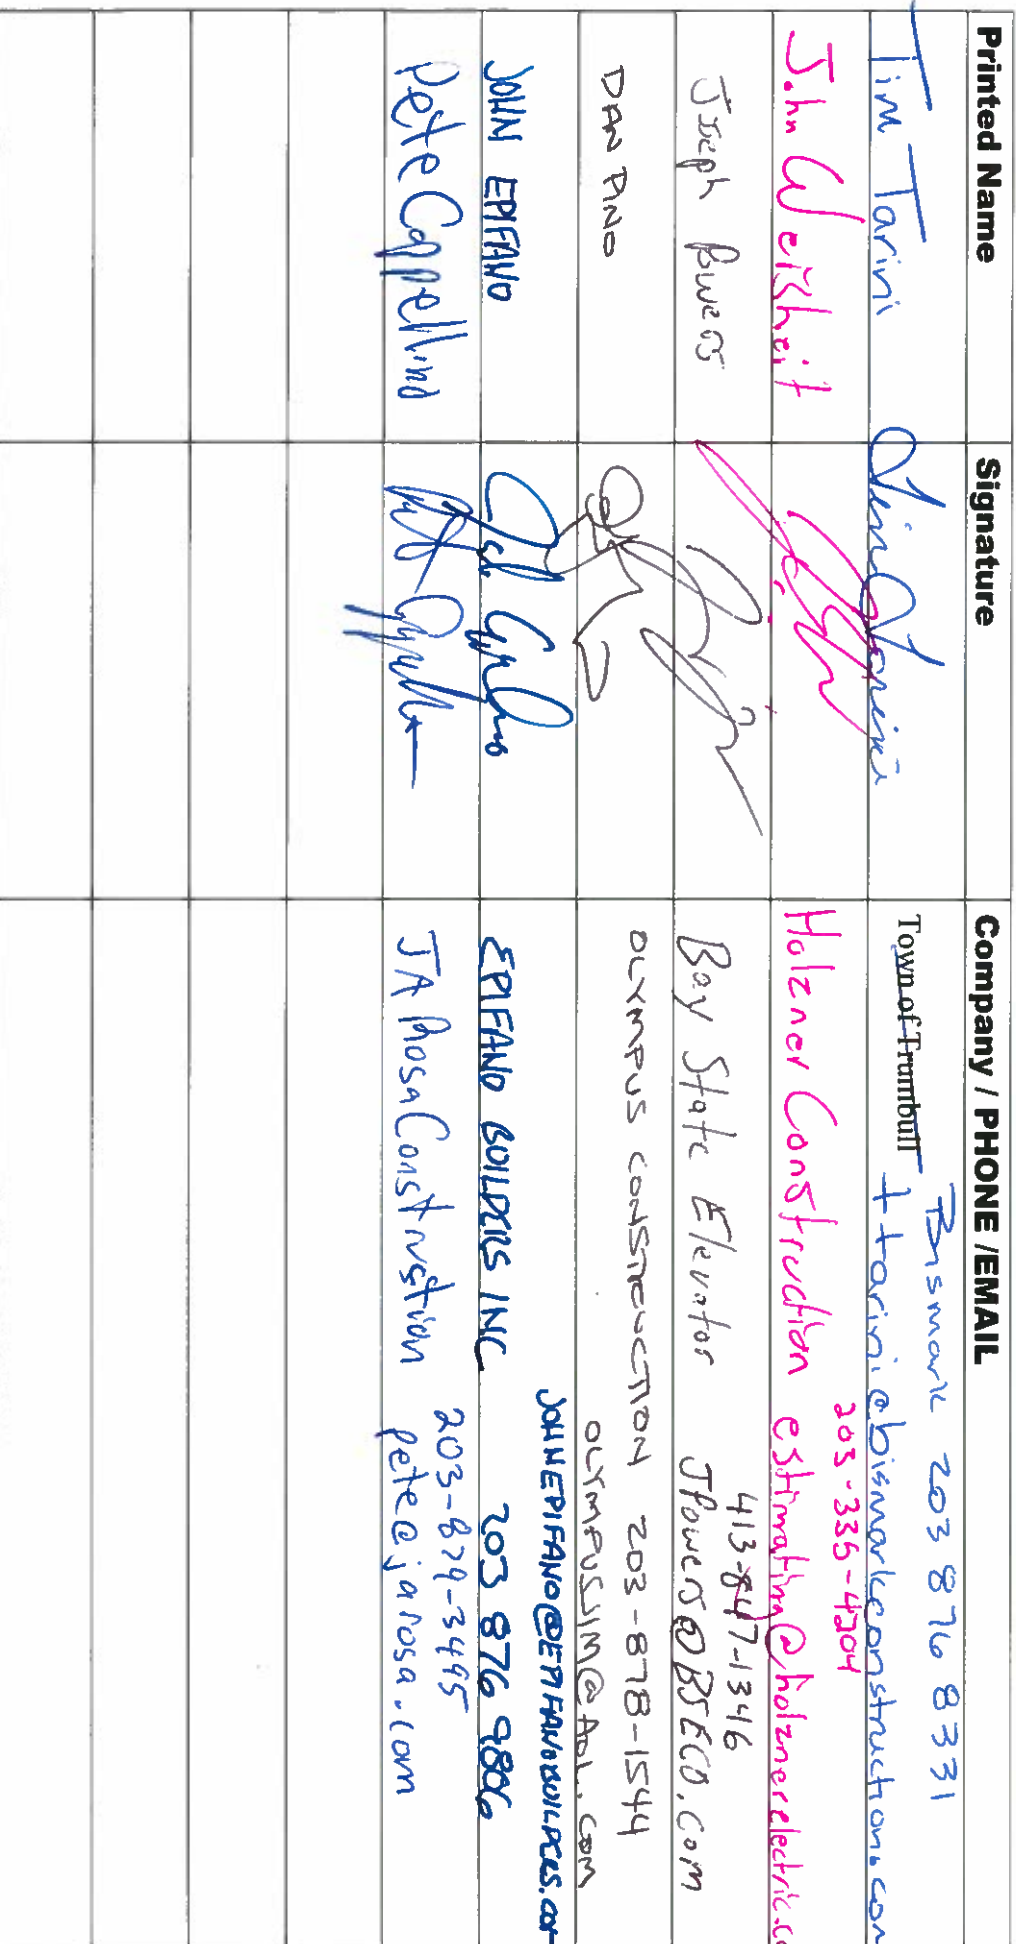 Printed Name Signature Company / PHONE /EMAIL
Tim Tarini Tim Tarini Town of Trumbull Bismark 203 876 8331
ttarini@bismarkconstruction.com
John Weisheit Holzner Construction 203-335-4204
estimating@holznerelectric.co
Joseph Powers Bay State Elevator 413-847-1346
JPowers@BSECO.com
DAN PINO OLYMPUS CONSTRUCTION 203-878-1544
OLYMPUSSIM@AOL.COM
JOHN EPIFANO EPIFANO BUILDERS INC JOHNEPIFANO@EPIFANOBUILDERS.COM
203 876 9806
Pete Cappellino JA Rosa Construction 203-879-3495
pete@jarosa.com